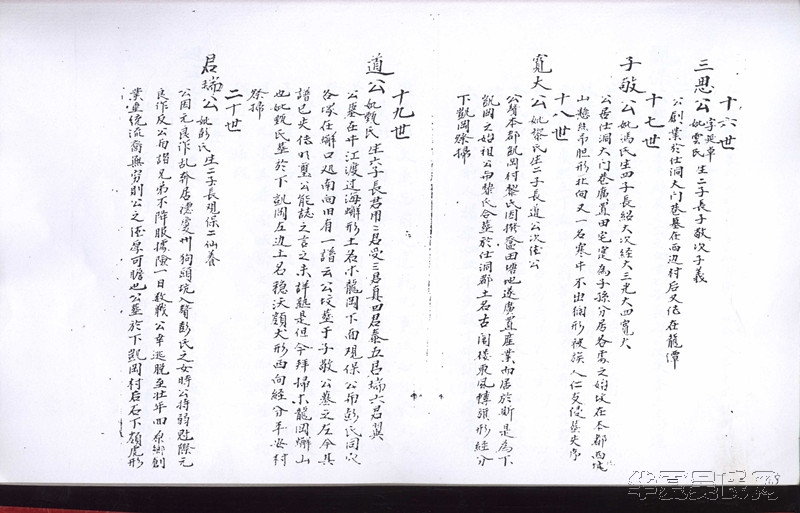 十六世
三思公 字延章 妣雲氏 生二子長子敬次子義
公創業於仕洞大門巷墓在西边村后又传在龍潭
十七世
子敬公 妣馮氏生四子長紹大次經大三光大四寬大
公居仕洞大門巷廣置田宅定為子孫分居各處之始坟在本都西坑
山懸絲吊胆形北向又一名寒牛不出欄形被族人仁友侵葬失序
十八世
寬大公 妣黎氏生二子長道公次佳公
公贅本都凱岡村黎氏因撥奩田塘地遂廣置產業而居於斯是為下
凱岡之始祖公與黎氏合葬於仕洞都土名古閣樓東風轉旗形經分
下凱岡祭掃
十九世
道公 妣甄氏 生六子長君用二君受三君真四君泰五君瑞六君翼
公墓在牛江渡过海螄形土名木龍岡下面观保公與彭氏同穴
各塚在螄口처南向旧有一譜云公坟葬于子敬公墓之左今其
譜已失传明堅公能誌之言之未詳熟是但今拜掃木龍岡螄山
也妣甄氏葬於下凱岡左边土名稳沃顏犬形西向經分平安村
祭掃
二十世
君瑞公 妣彭氏 生二子長观保二仙養
公因元良作乱奔居德慶州狗頭坑入贅彭氏之女時公持弱冠際元
良作反公與諸兄弟不降服據險一日敗戰公幸逃脫至壯年回原鄉創
業垂统流裔無穷則公之德厚可瞻也公葬於下凱岡村后石下顏虎形